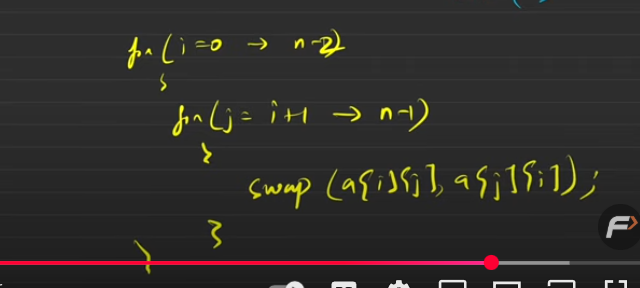 for (i = 0 → n-2)
{
for (j = i+1 → n-1)
{
swap (a[i][j], a[j][i]);
}
}
F